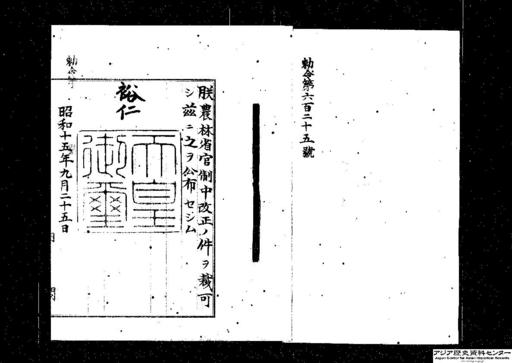 勅令第六百二十五號
朕農林省官制中改正ノ件ヲ裁可
シ茲ニ之ヲ公布セシム
裕仁
天皇
御璽
昭和十五年九月二十五日
勅令第
アジア歴史資料センター
Japan Center for Asian Historical Records